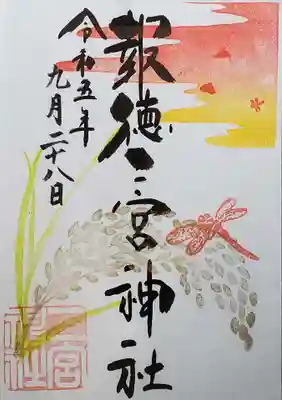 報徳二宮神社
令和五年
九月二十八日
二宮
神社